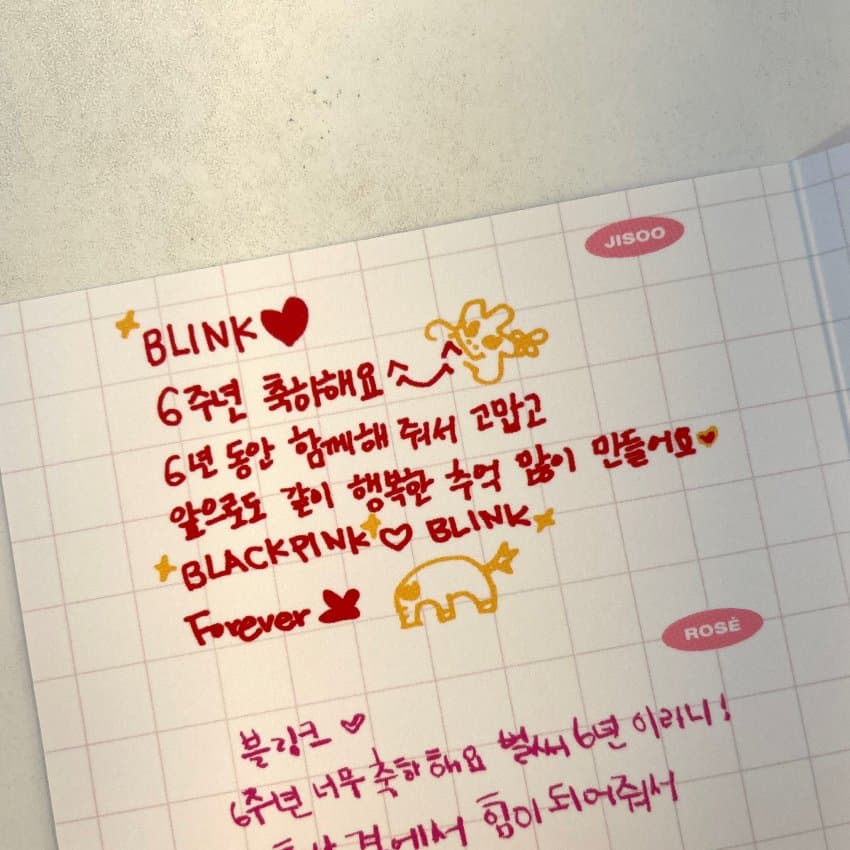 JISOO
BLINK
6주년 축하해요
6년 동안 함께해 줘서 고맙고
앞으로도 같이 행복한 추억 많이 만들어요
BLACKPINK ♡ BLINK
Forever
ROSÉ
블링크 ♡
6주년 너무 축하해요 벌써 6년 이라니!
항상 곁에서 힘이 되어줘서